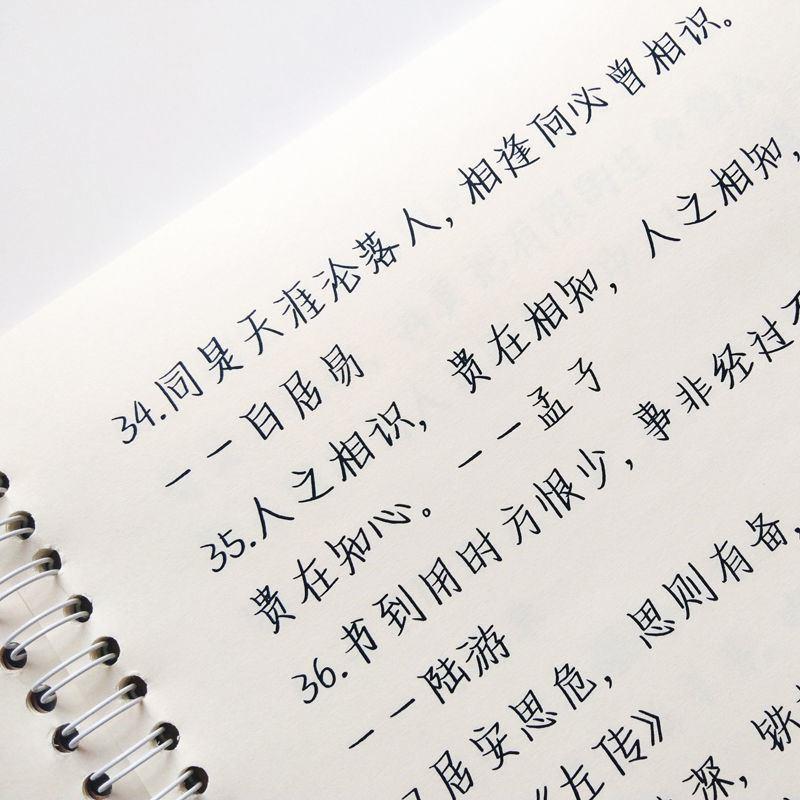 34.同是天涯沦落人,相逢何必曾相识。
——白居易
35.人之相识,贵在相知,人之相知,
贵在知心。——孟子
36.书到用时方恨少,事非经过不
——陆游
居安思危,思则有备,
《左传》
深,铁